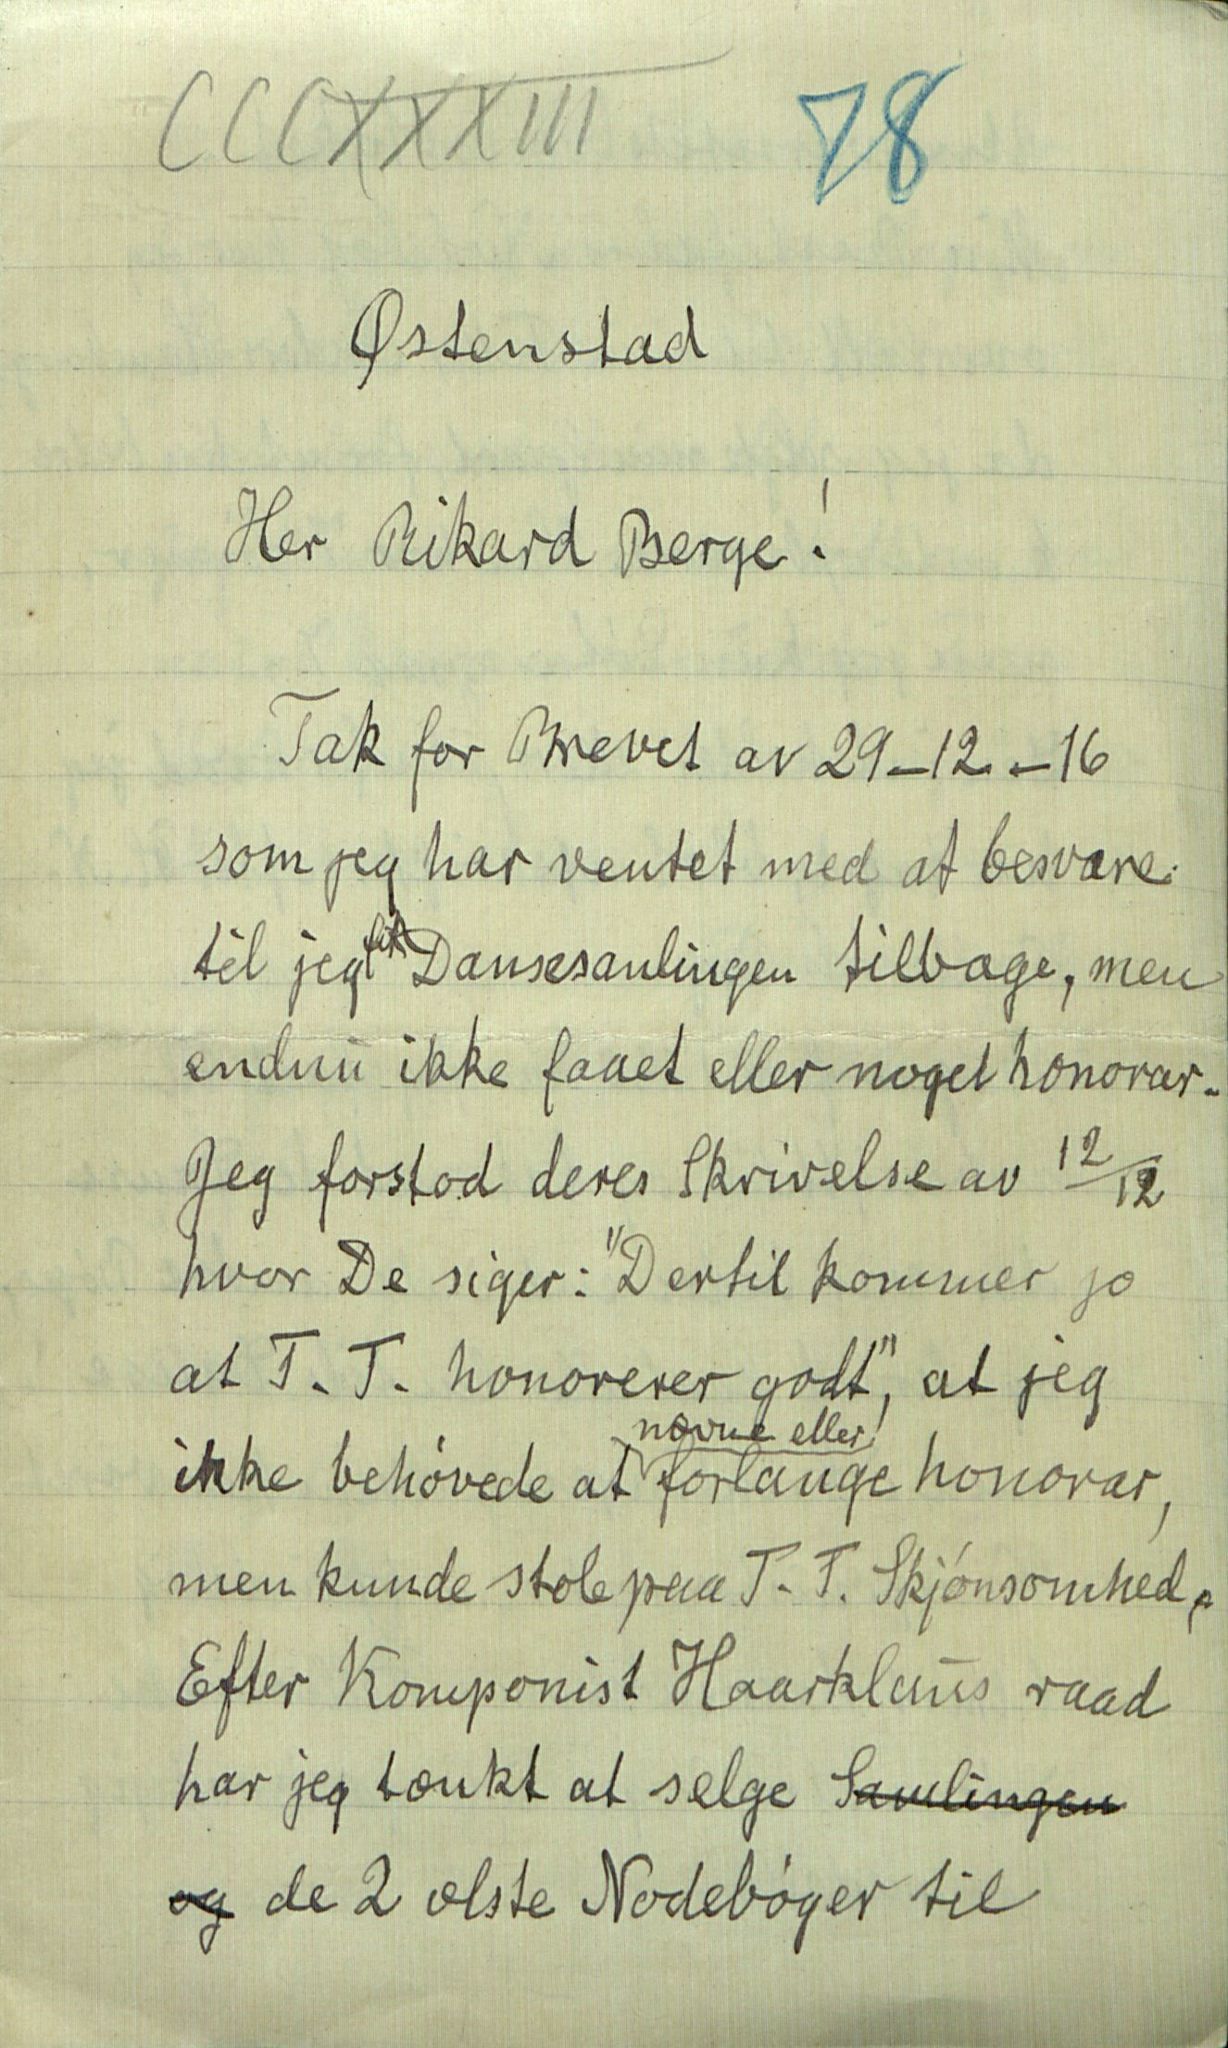 CCCXXXIII 78
Østenstad
Her Rikard Berge!
Tak for Brevet av 29-12-16
som jeg har ventet med at besvare
til jeg fik Dansesamlingen tilbage, men
endnu ikke faaet eller noget honorar.
Jeg forstod deres Skrivelse av 12/12
hvor De siger: "Dertil kommer jo
at T. T. honorerer godt", at jeg
nævne eller
ikke behövede at forlange honorar,
men kunde stole paa T. T. Skjönsomhed.
Efter Komponist Haarklaus raad
har jeg tænkt at selge Samlingen
og de 2 ælste Nodebóger til